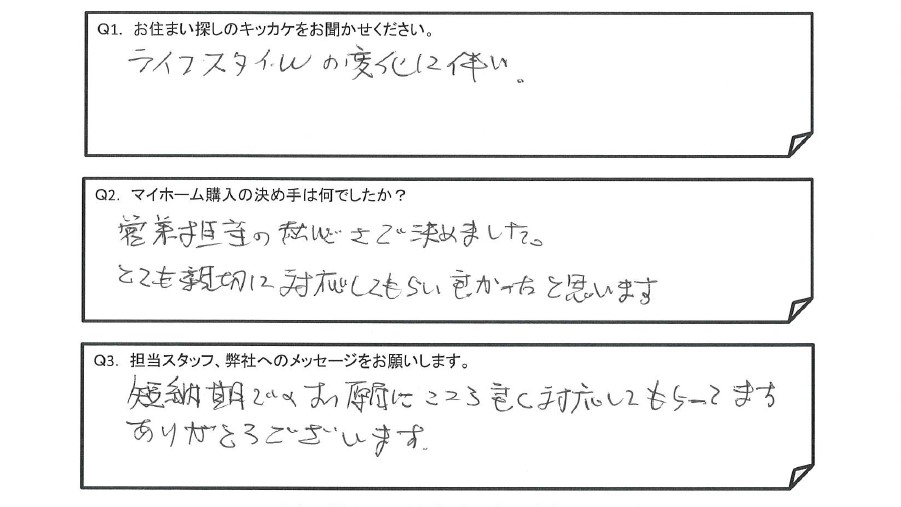 Q1. お住まい探しのキッカケをお聞かせください。
ライフスタイルの変化に伴い。
Q2. マイホーム購入の決め手は何でしたか？
営業担当の熱心さで決めました。
とても親切に対応してもらい良かったと思います
Q3. 担当スタッフ、弊社へのメッセージをお願いします。
短納期でのお願にこころ良く対応してもらって
ありがとうございます。